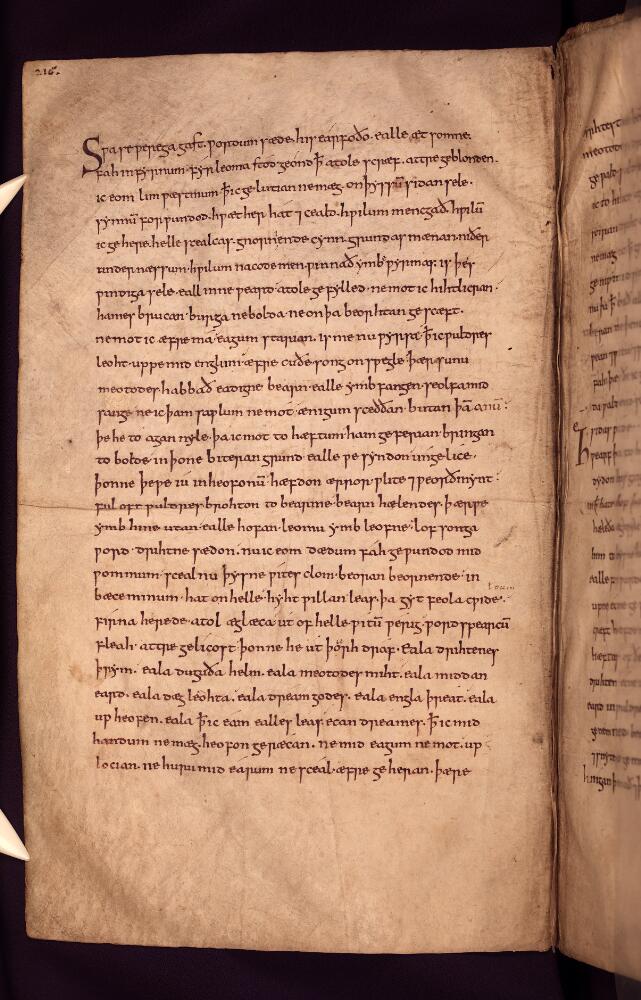 216.
Sƿa se ƿerega gast. ƿordum sæde. his earfoðo. ealle. ætsomne.
fah in fyrnum. fyrleoma stod geond þ̄ atole scræf. attre geblonden.
ic eom limƿæstmum þ̄ ic gelutian ne mæg. on þyssū sidan sele.
synnū forƿundod. hƿæt her hat ⁊ ceald. hƿilum mencgað. hƿilū
ic gehere. helle scealcas. gnornende cynn. grundas mænan. niðer
under næssum. hƿilum nacode men. ƿinnað ymb ƿyrmas. is þes
ƿindiga sele. eall inneƿeard. atole gefylled. ne mot ic hihtlicran.
hames brucan. burga ne bolda. ne on þa beorhtan gesceft.
ne mot ic æfre ma. eagum starian. is me nu ƿyrsa. þ̄ ic ƿuldres
leoht. uppe mid englum. æfre cuðe. song on sƿegle. þær sunu
meotodes. habbað eadigne. bearn. ealle ymbfangen. seolfa mid
sange. ne ic þam saƿlum ne mot. ænigum sceððan. butan þā anū.
þe he to agan nyle. þa ic mot to hæftum. ham geferian. bringan
to bolde. in þone biteran grund. ealle ƿe syndon. ungelice.
þonne þe ƿe iu in heofonū. hæfdon ærror. ƿlite ⁊ ƿeorðmynt.
ful oft ƿuldres. brohton to bearme. bearn hælendes. þær ƿe
ymb hine utan. ealle hofan. leomu ymb leofne. lofsonga
ƿord. drihtne sædon. nu ic eom dædum fah. geƿundod mid
ƿommum. sceal nu þysne ƿites clom. beoran beornende. in
bæce minum. hat on helle. hyhtƿillan leas. þa gyt feola cƿide.
firna herede. atol æglæca. ut of helle. ƿitū ƿerig. ƿord sƿearcū
fleah. attre gelicost. þonne he ut þorh draf. Eala drihtenes
þrym. eala duguða helm. eala meotodes miht. eala middan
eard. eala dæg leohta. eala dream godes. eala engla þreat. eala
up heofen. eala þ̄ ic eam ealles leas ecan dreames. þ̄ ic mid
handum ne mæg. heofon geræcan. ne mid eagum ne mot. up
locian. ne huru mid earum ne sceal. æfre geheran. þære